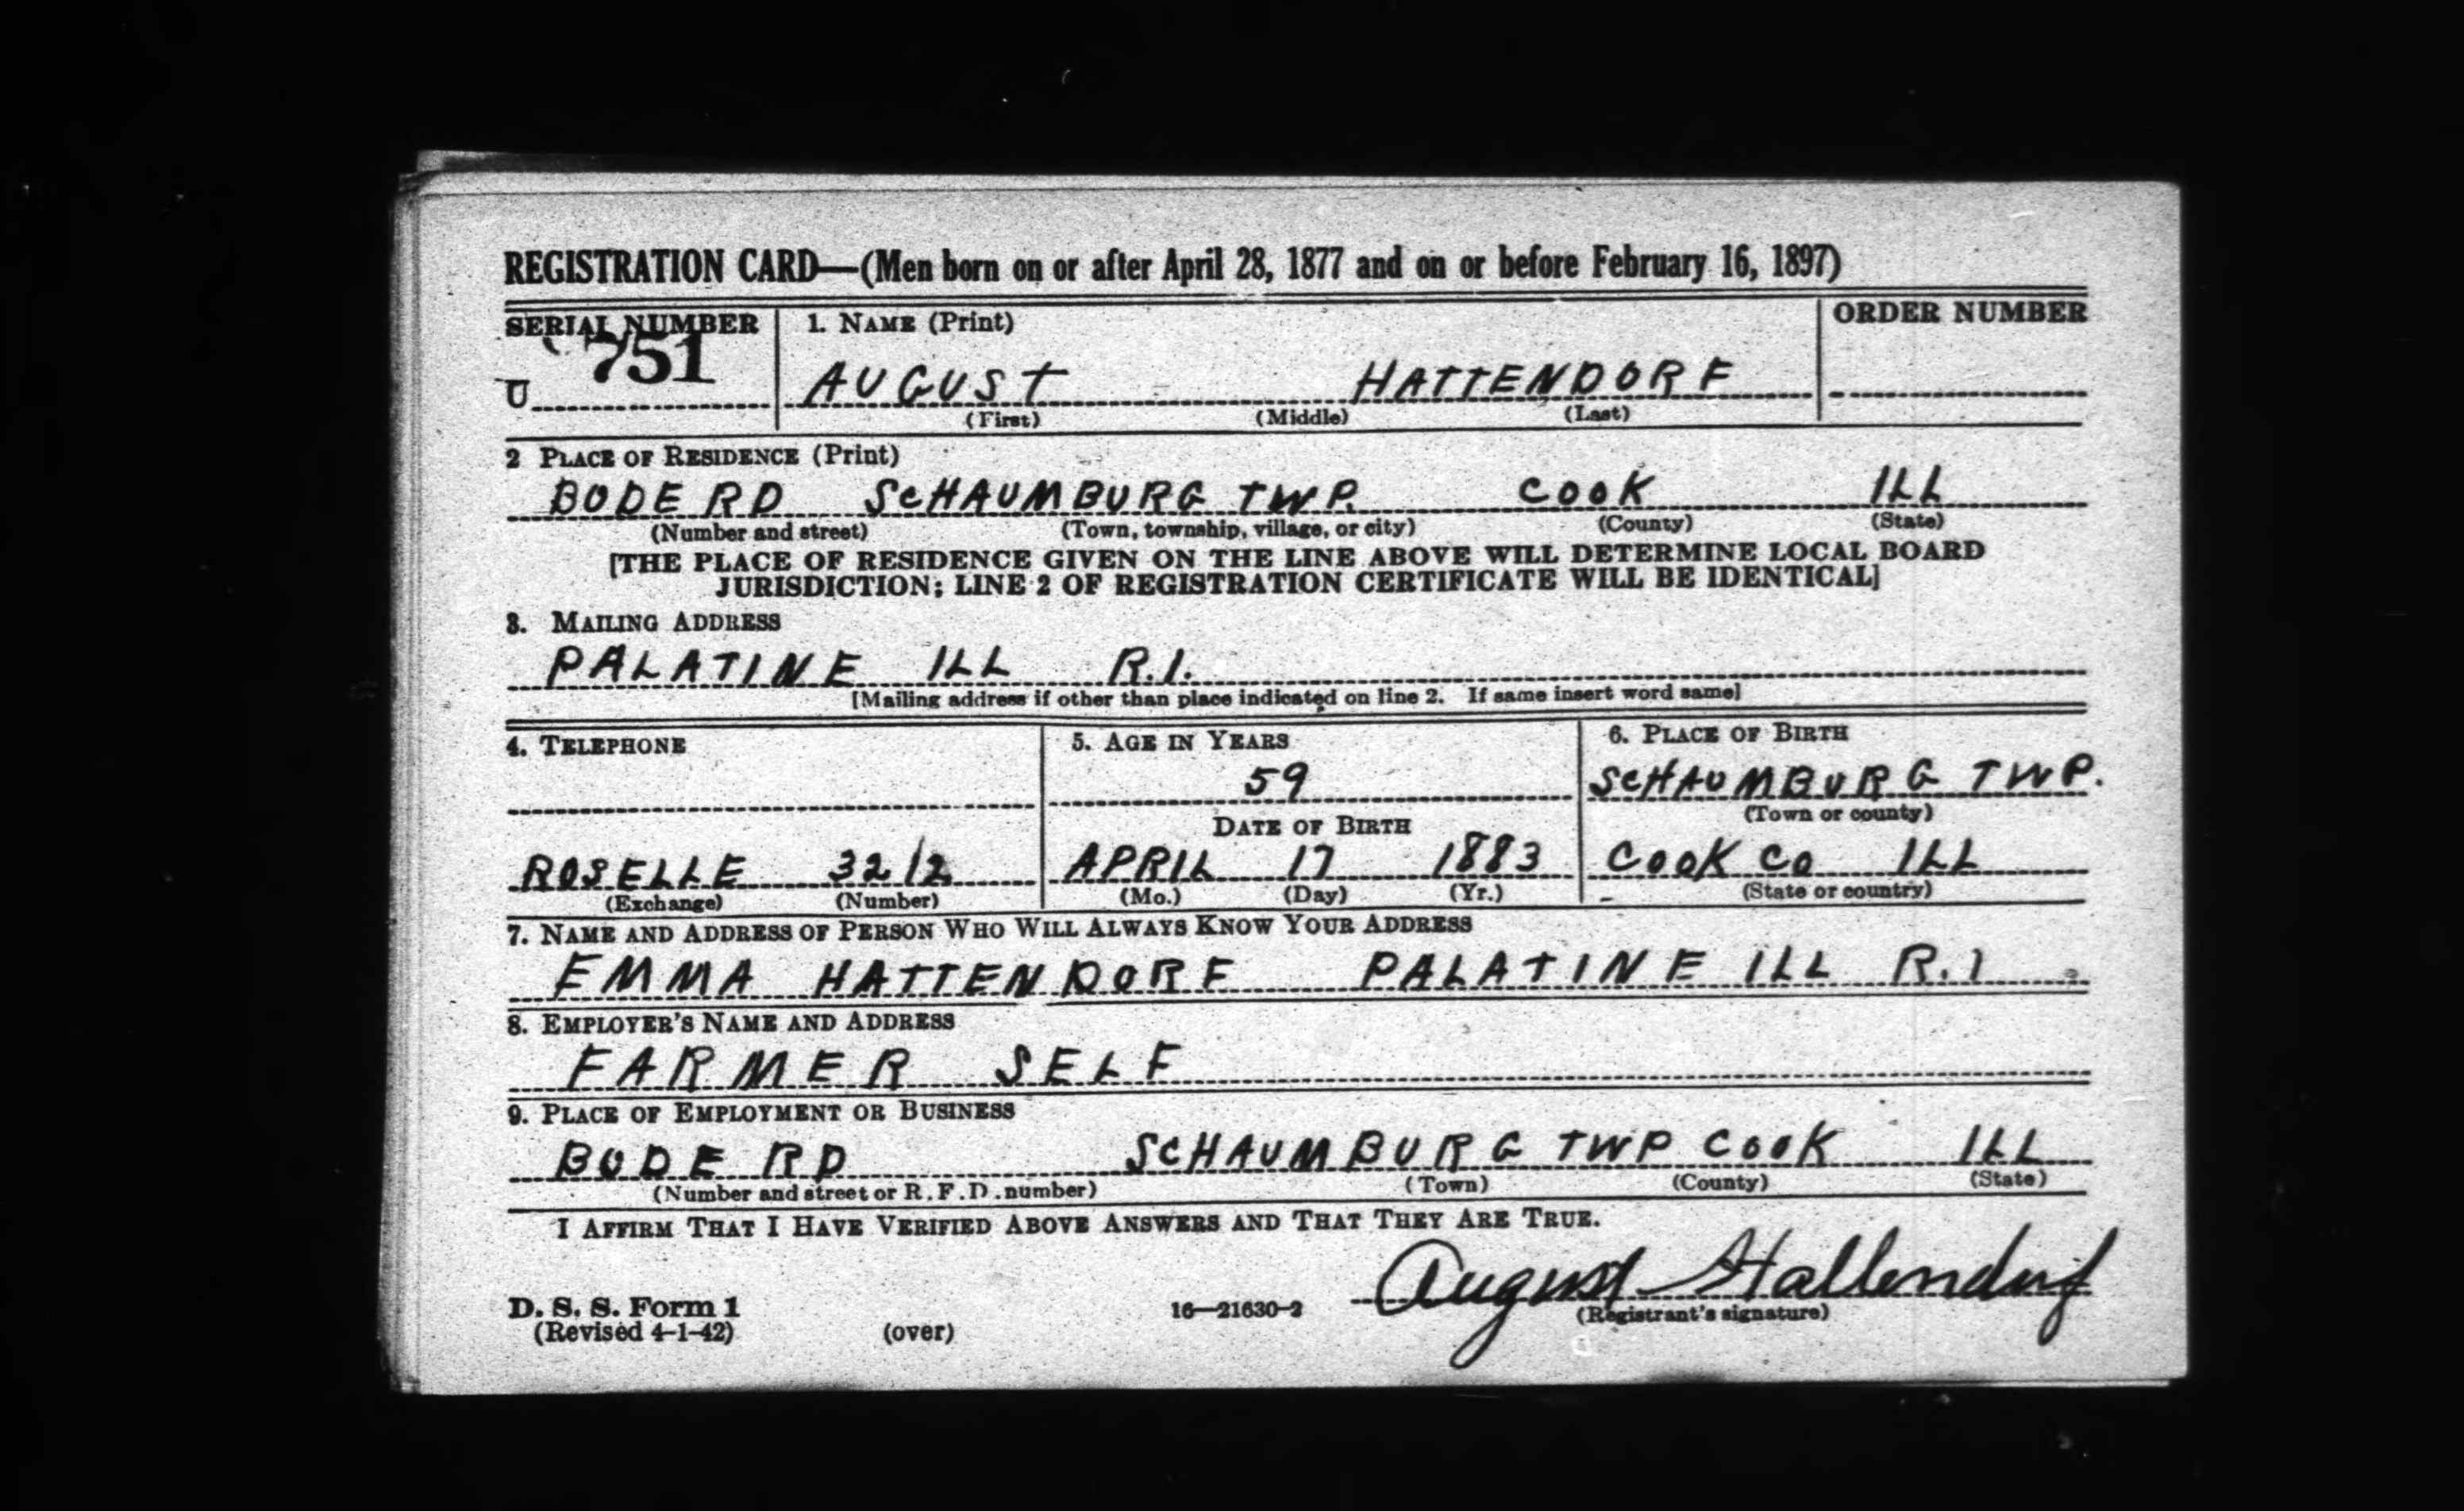 REGISTRATION CARD—(Men born on or after April 28, 1877 and on or before February 16, 1897)
SERIAL NUMBER 1. NAME (Print) ORDER NUMBER
U 751 AUGUST HATTENDORF
(First) (Middle) (Last)
2 PLACE OF RESIDENCE (Print)
BODE RD SCHAUMBURG TWP. COOK ILL
(Number and street) (Town, township, village, or city) (County) (State)
[THE PLACE OF RESIDENCE GIVEN ON THE LINE ABOVE WILL DETERMINE LOCAL BOARD
JURISDICTION; LINE 2 OF REGISTRATION CERTIFICATE WILL BE IDENTICAL]
3. MAILING ADDRESS
PALATINE ILL R.1.
[Mailing address if other than place indicated on line 2. If same insert word same]
4. TELEPHONE 5. AGE IN YEARS 6. PLACE OF BIRTH
59 SCHAUMBURG TWP.
(Town or county)
DATE OF BIRTH
ROSELLE 32/2 APRIL 17 1883 COOK CO ILL
(Exchange) (Number) (Mo.) (Day) (Yr.) (State or country)
7. NAME AND ADDRESS OF PERSON WHO WILL ALWAYS KNOW YOUR ADDRESS
EMMA HATTENDORF PALATINE ILL R.1
8. EMPLOYER'S NAME AND ADDRESS
FARMER SELF
9. PLACE OF EMPLOYMENT OR BUSINESS
BODE RD SCHAUMBURG TWP COOK ILL
(Number and street or R. F. D. number) (Town) (County) (State)
I AFFIRM THAT I HAVE VERIFIED ABOVE ANSWERS AND THAT THEY ARE TRUE.
August Hattendorf
D. S. S. Form 1 16—21630-2 (Registrant's signature)
(Revised 4-1-42) (over)